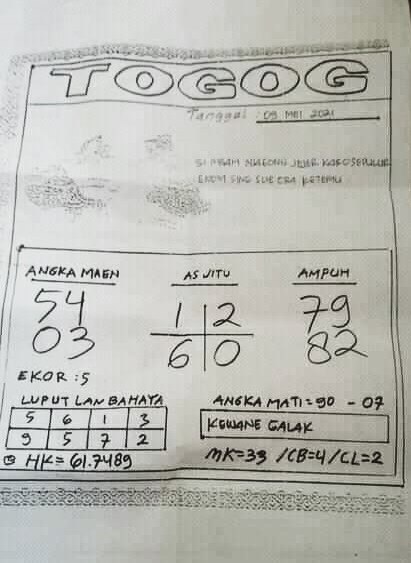 TOGOG
Tanggal : 09 MEI 2021
ANGKA MAEN
54
03
EKOR : 5
AS JITU
1 2
6 0
AMPUH
79
82
LUPUT LAN BAHAYA
5 6 1 3
9 5 7 2
HK= 61.7489
ANGKA MATI = 90 - 07
KEWANE GALAK
MK=33 /CB=4/CL=2